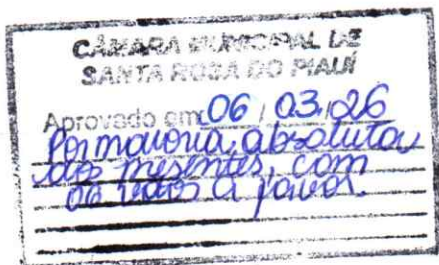 CÂMARA MUNICIPAL DE
SANTA ROSA DO PIAUÍ
Aprovado em 06 / 03 / 26
Por maioria absoluta
dos presentes, com
06 votos a favor.